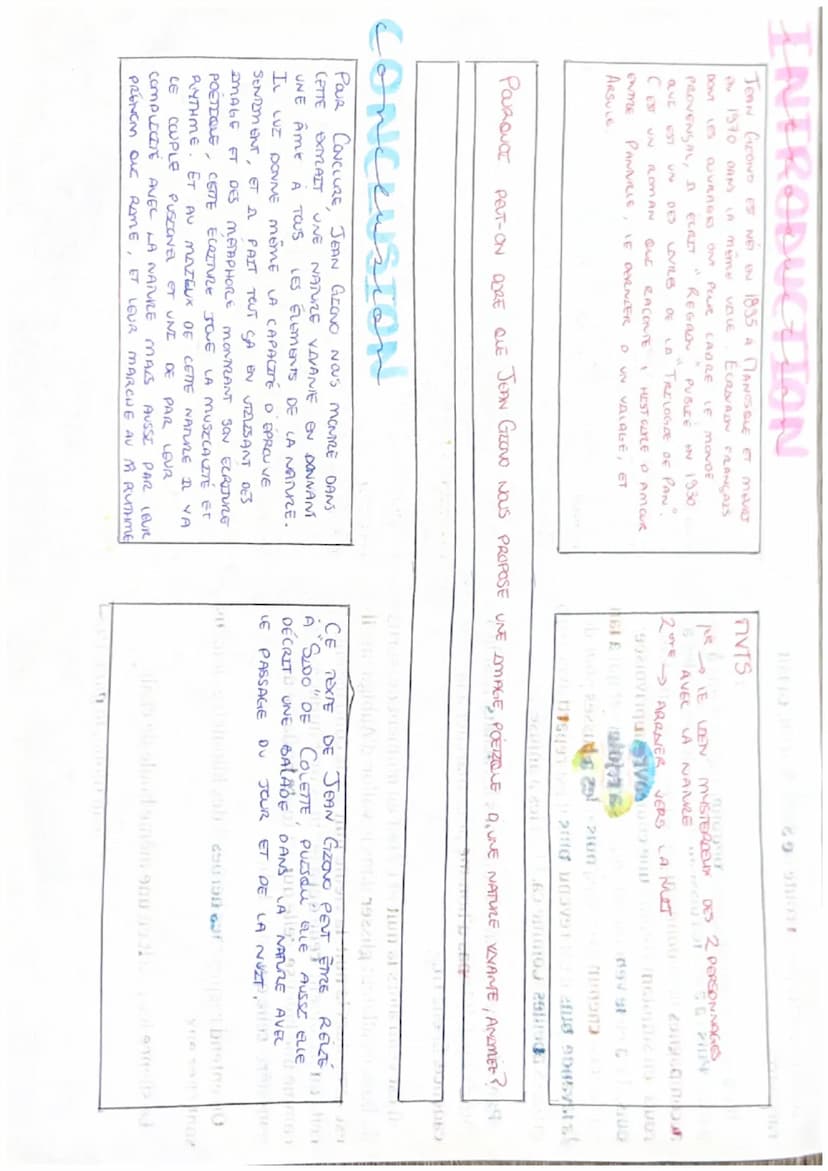 INTRODUCTION
JEAN GIONO EST NÉ EN 1895 A MANOSQUE ET MEURT
EN 1970 DANS LA MÊME VILLE. ÉCRIVAIN FRANÇAIS
DONT LES OUVRAGES ONT POUR CADRE LE MONDE
PROVENÇAL, IL ECRIT "REGAIN" PUBLIÉ EN 1930
QUI EST UN DES LIVRES DE LA "TRILOGIE DE PAN".
C'EST UN ROMAN QUI RACONTE L'HISTOIRE D'AMOUR
ENTRE PANTURLE, LE DERNIER D'UN VILLAGE, ET
ARSULE
MVTS:
1ER → LE LIEN MYSTERIEUX DES 2 PERSONNAGES
AVEC LA NATURE
2ÈME → ARRIVER VERS LA NUIT
POURQUOI PEUT-ON DIRE QUE JEAN GIONO NOUS PROPOSE UNE IMAGE POÉTIQUE D'UNE NATURE VIVANTE, ANIMÉE?
CONCLUSION
POUR CONCLURE, JEAN GIONO NOUS MONTRE DANS
CETTE EXTRAIT UNE NATURE VIVANTE EN DONNANT
UNE ÂME À TOUS LES ÉLEMENTS DE LA NATURE.
IL LUI DONNE MÊME LA CAPACITÉ D'ÉPROUVE
SENTIMENT, ET IL FAIT TOUT ÇA EN UTILISANT DES
IMAGE ET DES MÉTAPHORE MONTRANT SON ECRITURE
POÉTIQUE, CETTE ÉCRITURE JOUE LA MUSICALITÉ ET
RYTHME. ET AU MILIEUX DE CETTE NATURE IL Y A
LE COUPLE FUSIONEL ET UNI DE PAR LEUR
COMPLICITÉ AVEC LA NATURE MAIS AUSSI PAR LEUR
PRÉNOM QUI RIME, ET LEUR MARCHE AU M RYTHME
CE TEXTE DE JEAN GIONO PEUT ÊTRE RELIÉ
A "SIDO" DE COLETTE, PUISQU'ELLE AUSSI ELLE
DÉCRIT UNE BALADE DANS LA NATURE AVEC
LE PASSAGE DU JOUR ET DE LA NUIT.